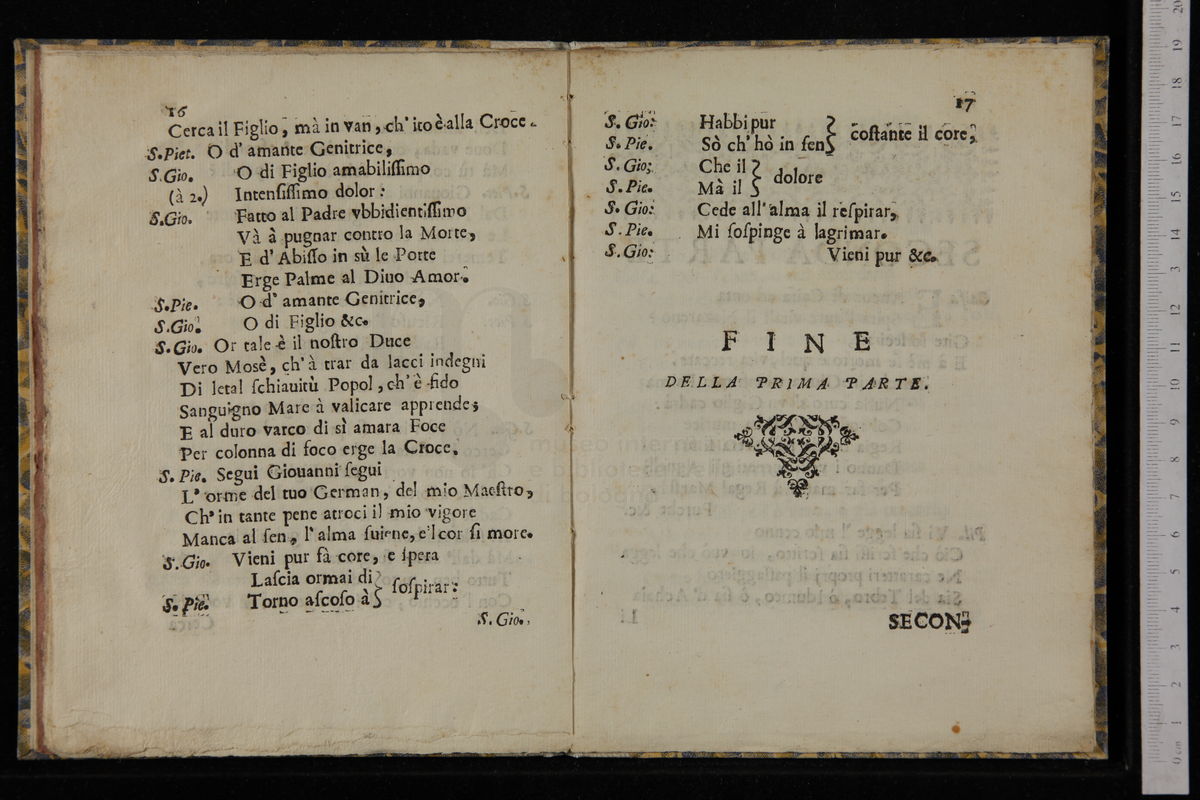 16
Cerca il Figlio, mà in van, ch' ito è alla Croce.
S.Piet. O d' amante Genitrice,
S.Gio. O di Figlio amabiliſſimo
(à 2.) Intenſiſſimo dolor:
S.Gio. Fatto al Padre vbbidientiſſimo
Và à pugnar contro la Morte,
E d' Abiſſo in sù le Porte
Erge Palme al Diuo Amor.
S.Pie. O d' amante Genitrice,
S.Gio. O di Figlio &c.
S.Gio. Or tale è il noſtro Duce
Vero Mosè, ch' à trar da lacci indegni
Di letal ſchiauitù Popol, ch' è fido
Sanguigno Mare à valicare apprende;
E al duro varco di sì amara Foce
Per colonna di foco erge la Croce.
S. Pie. Segui Giouanni ſegui
L' orme del tuo German, del mio Maeſtro,
Ch' in tante pene atroci il mio vigore
Manca al ſen, l' alma ſuiene, e'l cor ſi more.
S.Gio. Vieni pur fà core, e ſpera
Laſcia ormai di } ſoſpirar:
S. Pie. Torno aſcoſo à }
S. Gio.
17
S. Gio: Habbi pur } coſtante il core,
S. Pie. Sò ch' hò in ſen }
S. Gio; Che il } dolore
S. Pie. Mà il }
S. Gio: Cede all' alma il reſpirar,
S. Pie. Mi ſoſpinge à lagrimar.
S. Gio: Vieni pur &c.
FINE
DELLA PRIMA PARTE.
SECON-
museo internazionale
e biblioteca della
di bologna
0 cm 1 2 3 4 5 6 7 8 9 10 11 12 13 14 15 16 17 18 19 20